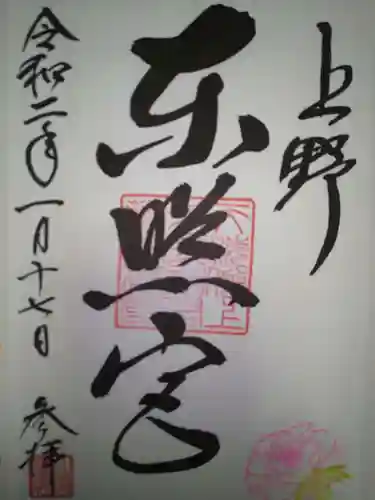 上野
東照宮
令和二年一月十七日
参拝